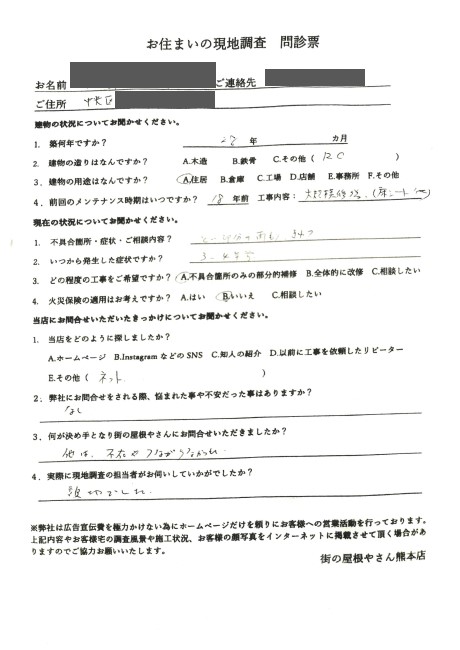 お住まいの現地調査 問診票
お名前 ご連絡先
ご住所 中央区
建物の状況についてお聞かせください。
1. 築何年ですか? 28 年 カ月
2. 建物の造りはなんですか? A.木造 B.鉄骨 C.その他( RC )
3. 建物の用途はなんですか? A.住居 B.倉庫 C.工場 D.店舗 E.事務所 F.その他
4. 前回のメンテナンス時期はいつですか? 18 年前 工事内容: 大規模修繕
現在の状況についてお聞かせください。
1. 不具合箇所・症状・ご相談内容?
2. いつから発生した症状ですか?
3. どの程度の工事をご希望ですか? A.不具合箇所のみの部分的補修 B.全体的に改修 C.相談したい
4. 火災保険の適用はお考えですか? A.はい B.いいえ C.相談したい
当店にお問合せいただいたきっかけについてお聞かせください。
1. 当店をどのように探しましたか?
A.ホームページ B.Instagram などの SNS C.知人の紹介 D.以前に工事を依頼したリピーター
E.その他( ネット )
2. 弊社にお問合せをされる際、悩まれた事や不安だった事はありますか?
なし
3. 何が決め手となり街の屋根やさんにお問合せいただきましたか?
他は、不在やつながらなかった
4. 実際に現地調査の担当者がお伺いしていかがでしたか?
親切でした。
※弊社は広告宣伝費を極力かけない為にホームページだけを頼りにお客様への営業活動を行っております。
上記内容やお客様宅の調査風景や施工状況、お客様の顔写真をインターネットに掲載させて頂く場合があ
りますのでご協力お願いいたします。
街の屋根やさん熊本店